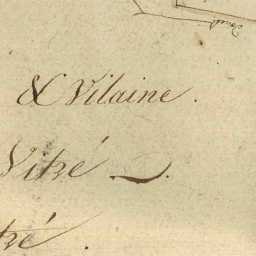 & Vilaine.
Vitré
tré.